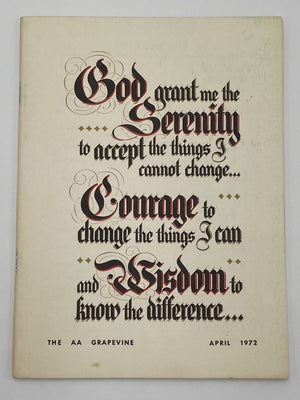 God grant me the
Serenity
to accept the things I
cannot change...
Courage to
change the things I can
and Wisdom to
know the difference...
THE AA GRAPEVINE APRIL 1972